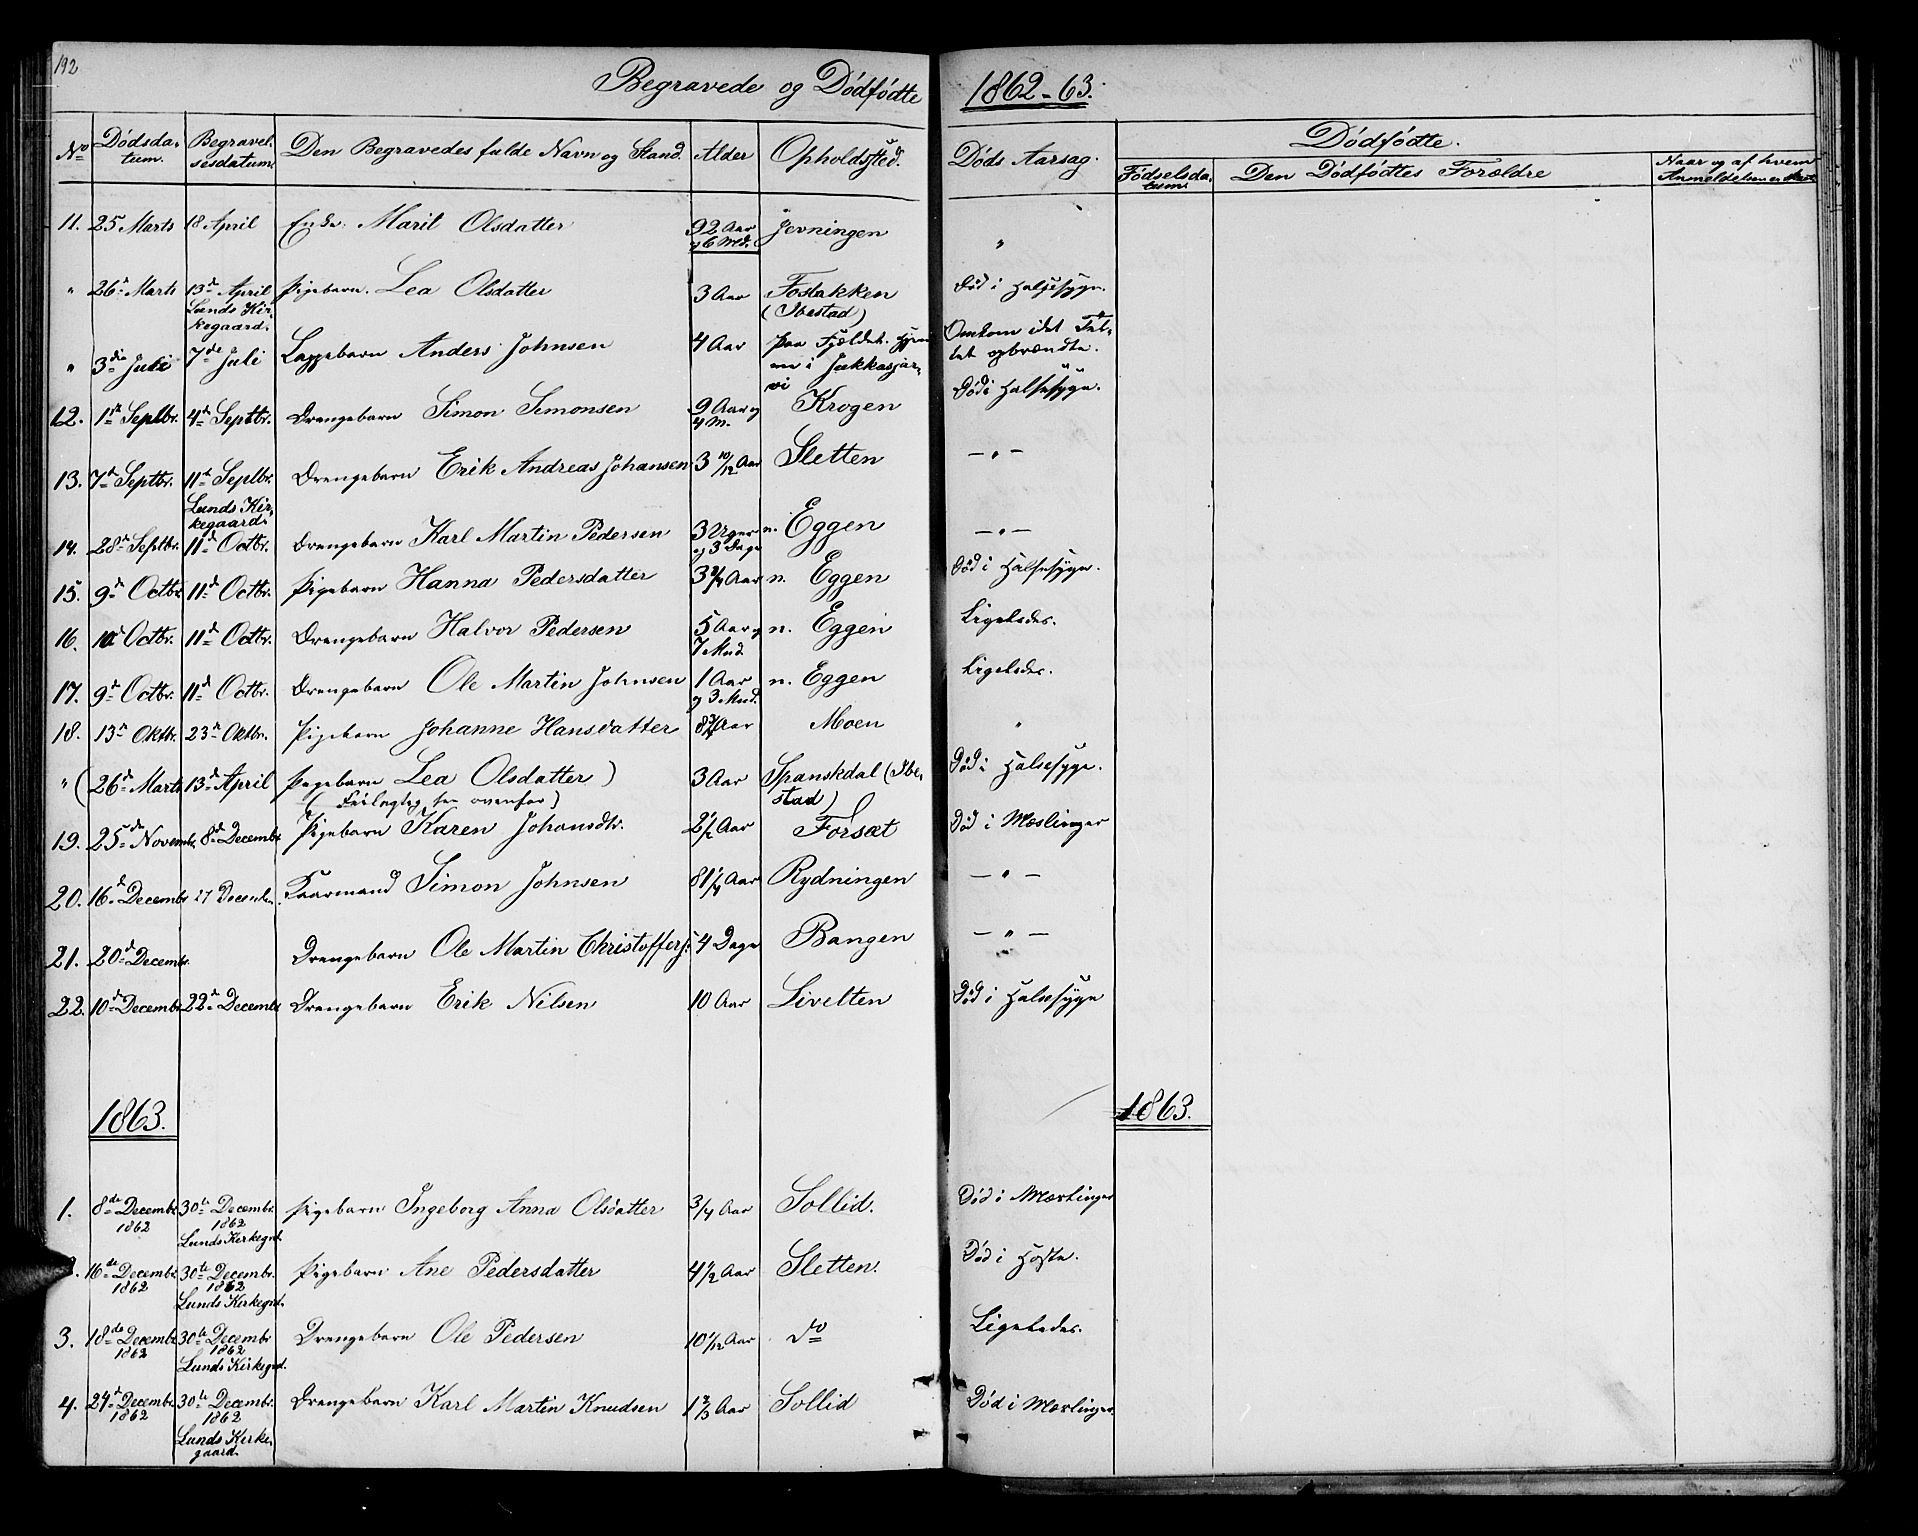 192
Begravede og Dödfödte 1862-63.
No Dödsdatum. Begravelsesdatum. Den Begravedes fulde Navn og Stand. Alder Opholdssted. Döds Aarsag. Dödfödte.
Födselsdatum. Den Dödfödtes Forældre Naar og af hvem Anmeldelsen er skeet
11. 25 Marts 18 April Enke Marit Olsdatter 92 Aar og 6 Md. Jevningen "
" 26d Marts 13d April Lunds Kirkegaard. Pigebarn. Lea Olsdatter 3 Aar Fosbakken (Ibestad) Död i Halsesyge.
" 3die Juli 7de Juli Lappebarn Anders Johnsen 4 Aar paa Fjeldet. Hjemme i Jukkasjarvi Omkom i det Teltet opbrændte.
12. 1st Septbr. 4d Septbr. Drengebarn Simon Simonsen 9 Aar og 4 M. Krogen Död i Halsesyge.
13. 7d Septbr. 11d Septbr. Lunds Kirkegaard. Drengebarn Erik Andreas Johansen 3 10/12 Aar Sletten — " —
14. 28d Septbr. 11d Octbr. Drengebarn Karl Martin Pedersen 3 Uger og 3 Dage n. Eggen — " —
15. 9d Octbr. 11d Octbr. Pigebarn Hanna Pedersdatter 3 3/4 Aar n. Eggen Död i Halsesyge.
16. 10d Octbr. 11d Octbr. Drengebarn Halvor Pedersen 5 Aar og 7 Mnd n. Eggen Ligeledes.
17. 9d Octbr. 11d Octbr. Drengebarn Ole Martin Johnsen 1 Aar og 3 Mnd. n. Eggen Ligeledes.
18. 13d Oktbr. 23d Oktbr. Pigebarn Johanne Hansdatter 8 3/4 Aar Moen "
" (26d Marts 13d April Pigebarn Lea Olsdatter) 3 Aar Spanskdal (Ibestad) Död i Halsesyge.
(Feilagtig see ovenfor)
19. 25de Novembr. 8d Decembr Pigebarn Karen Johansdtr. 2 1/2 Aar Forsæt Död i Mæslinger
20. 16d Decembr 27 Decembr. Kaarmand Simon Johnsen 81 1/4 Aar Rydningen — " —
21. 20d Decembr. Drengebarn Ole Martin Christoffers. 4 Dage Bangen — " —
22. 10d Decembr 22d Decembr Drengebarn Erik Nilsen 10 Aar Livelten Död i Halsesyge
1863. 1863.
1. 8de Decembr 1862 30te Decembr. 1862 Lunds Kirkegrd. Pigebarn Ingeborg Anna Olsdatter 3/4 Aar Sollid. Död i Mæslinger
2. 16de Decembr 1862 30te Decembr. 1862 Lunds Kirkegrd. Pigebarn Ane Pedersdatter 4 1/2 Aar Sletten. Död i Hoste.
3. 18de Decembr 1862 30te Decembr 1862 Lunds Kirkegrd. Drengebarn Ole Pedersen 10 1/12 Aar do Ligeledes.
4. 24d Decembr 1862 30te Decembr. 1862 Lunds Kirkegaard. Drengebarn Karl Martin Knudsen 1 2/3 Aar Sollid Död i Mæslinger.